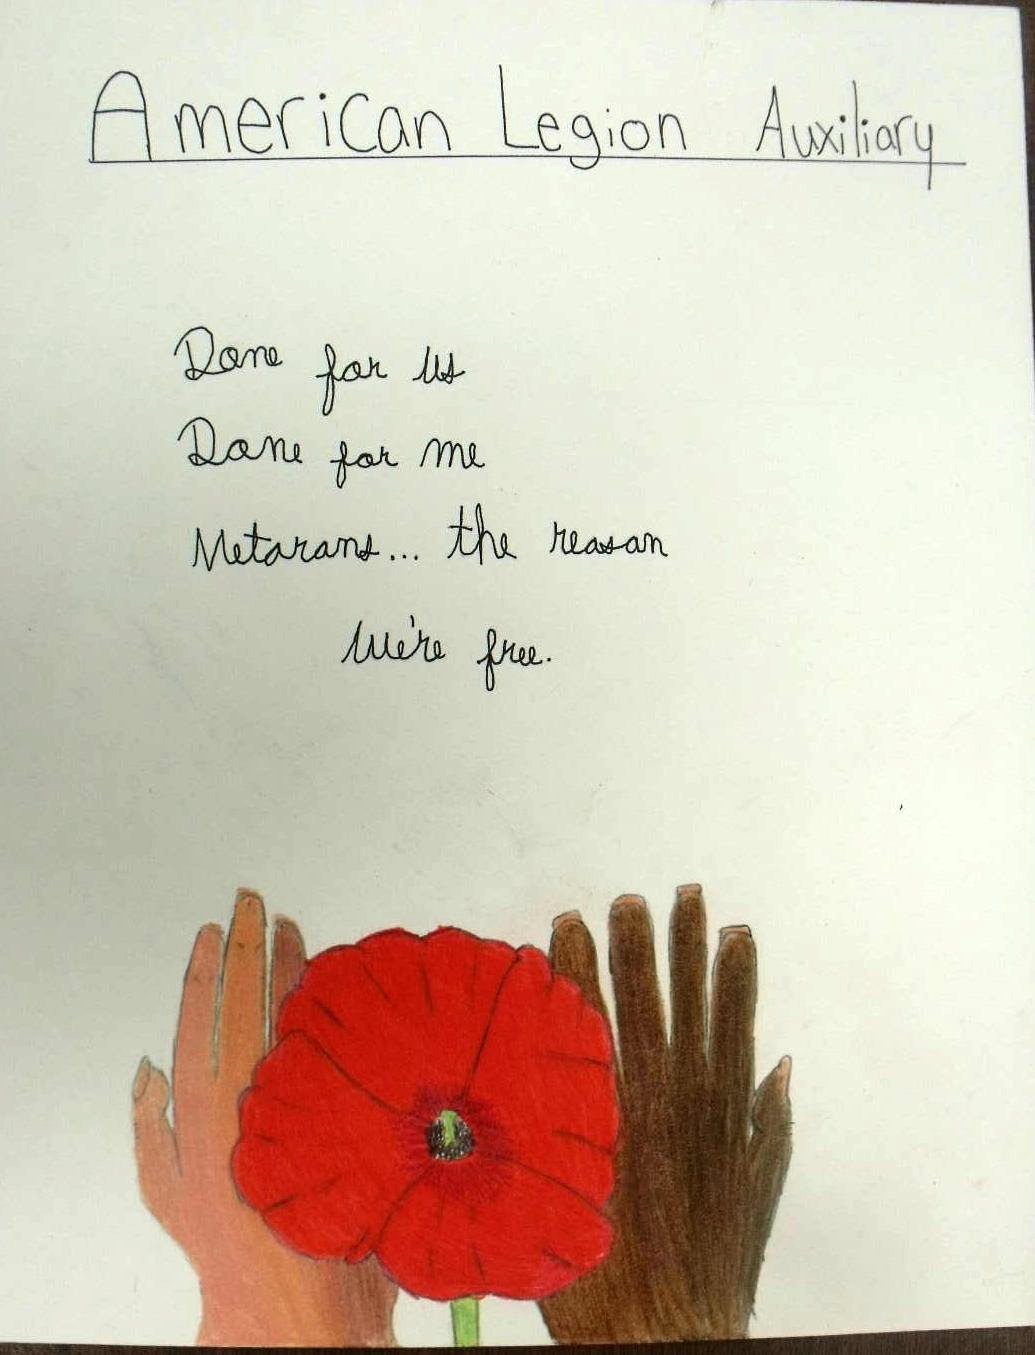 American Legion Auxiliary
Done for us
Done for me
Veterans... the reason
We're free.